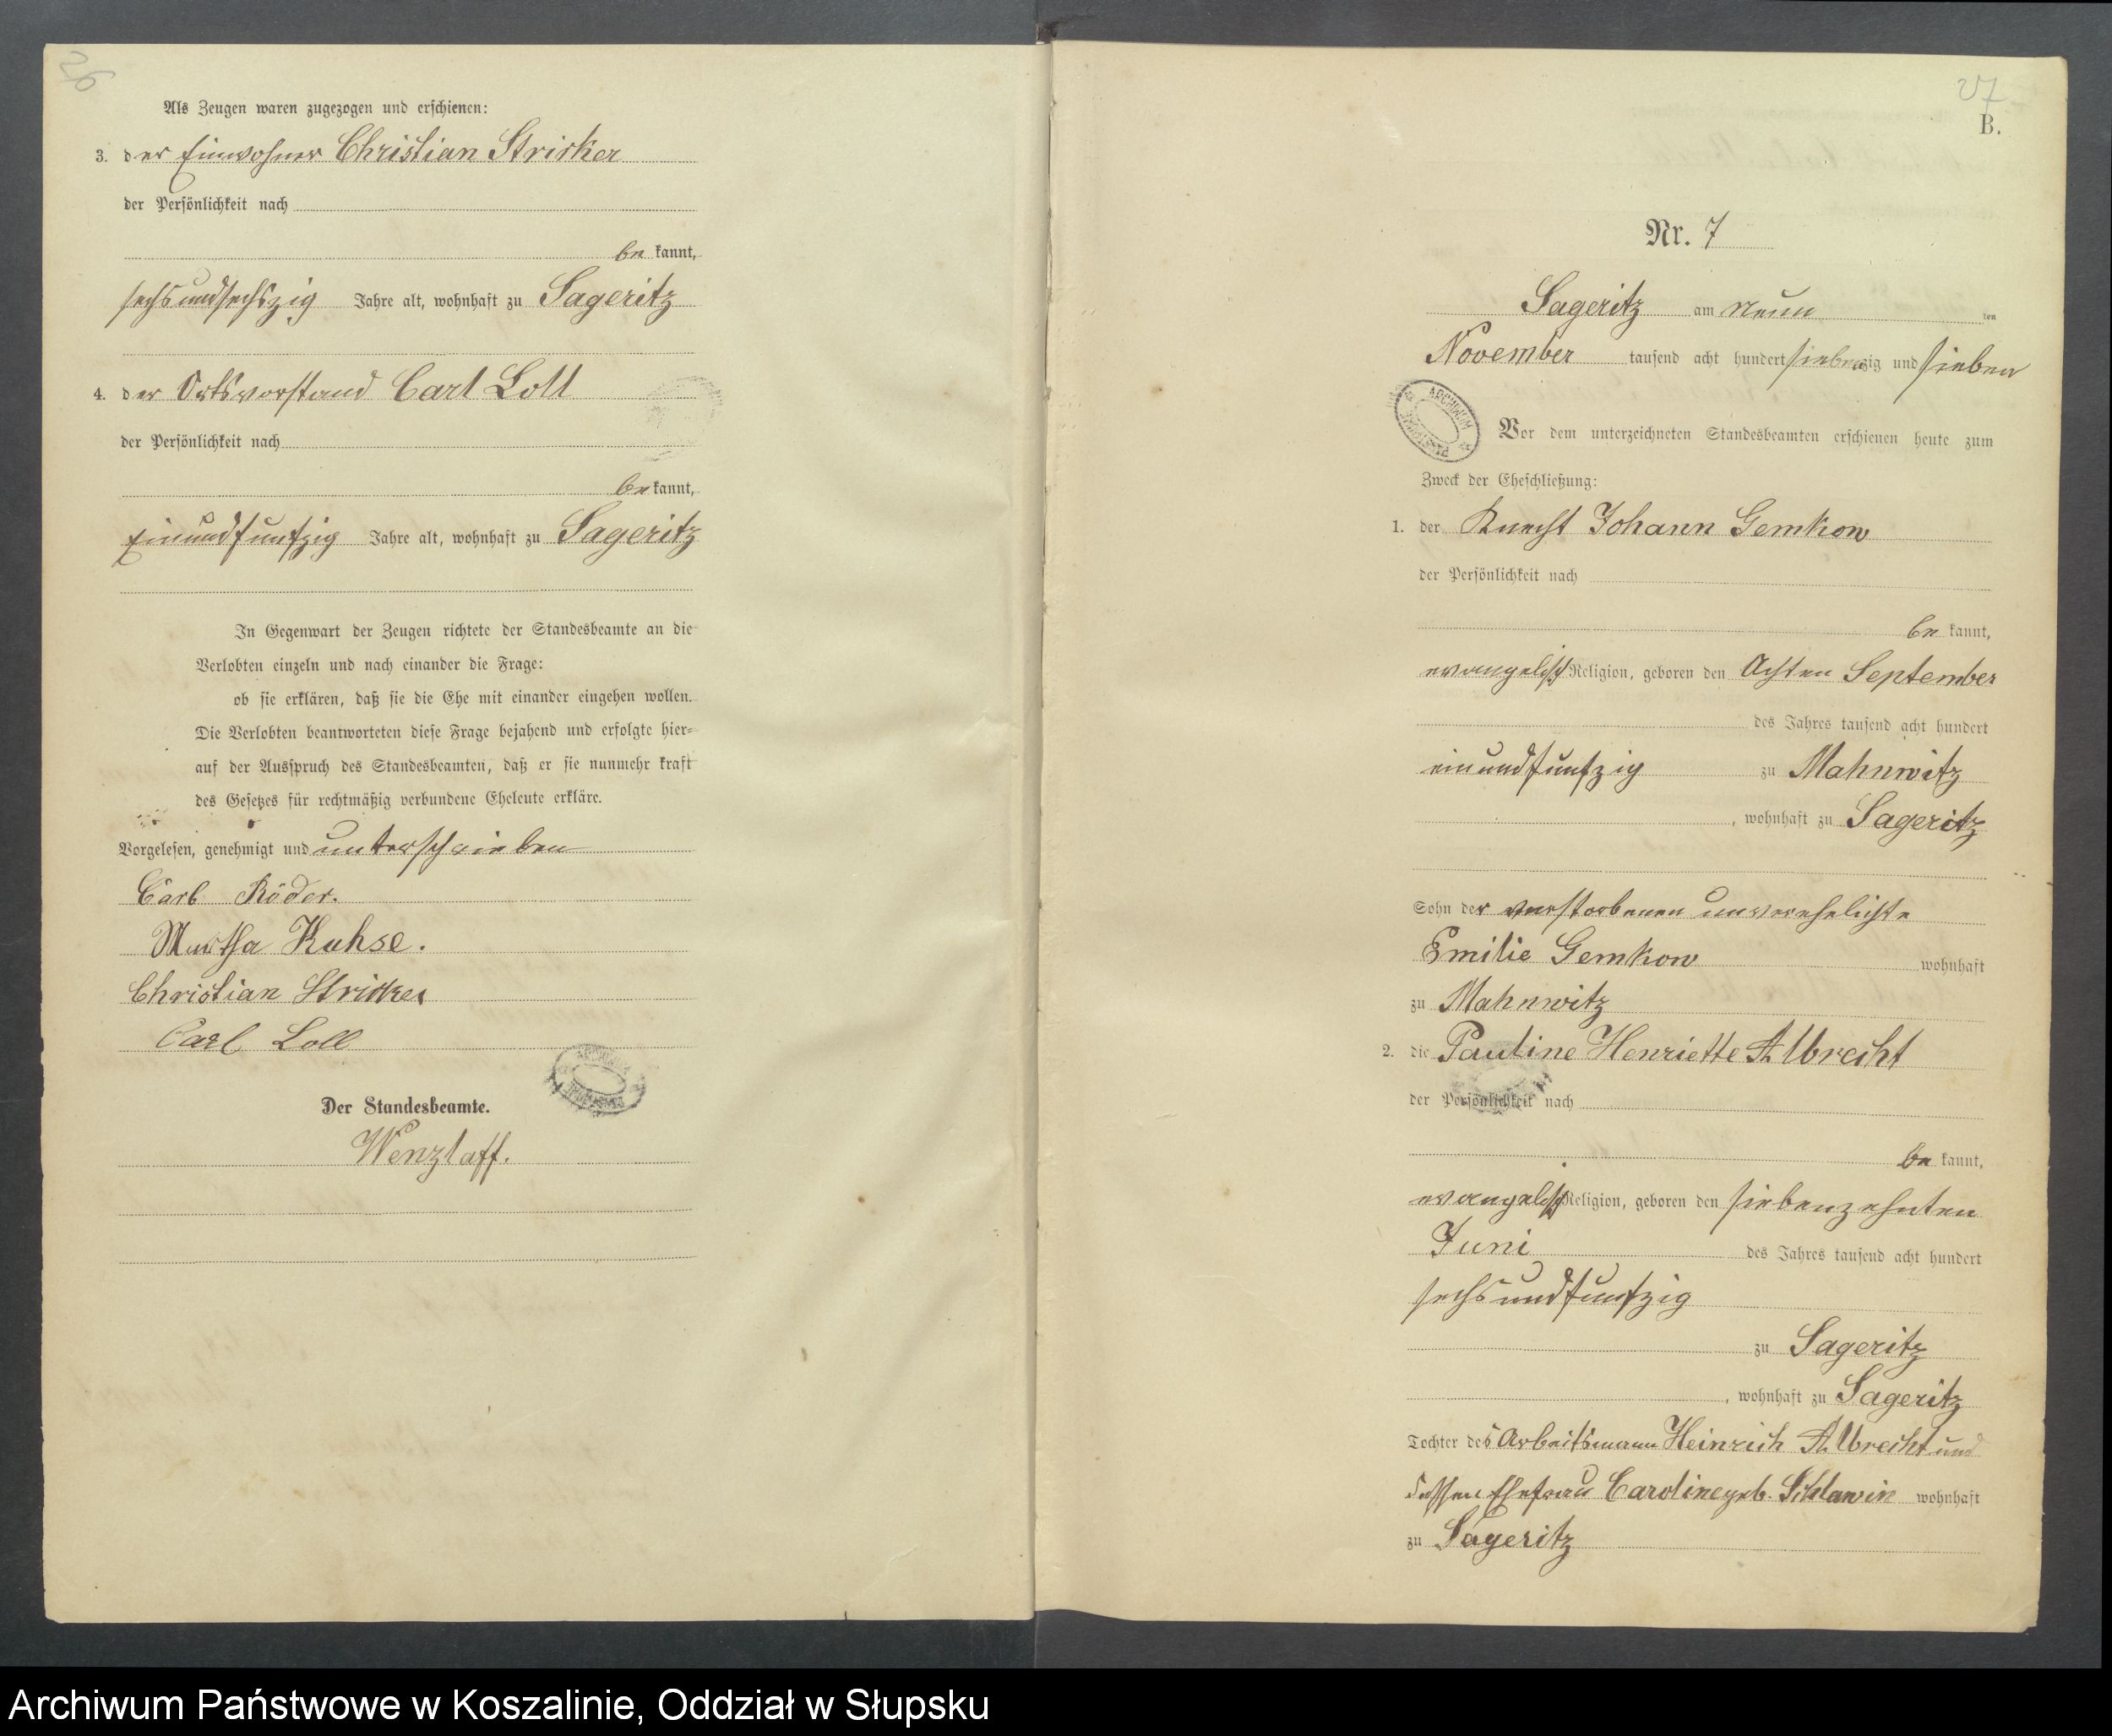 26
Als Zeugen waren zugezogen und erschienen:
3. der Einwohner Christian Stricker
der Persönlichkeit nach
be kannt,
sechsundsechszig Jahre alt, wohnhaft zu Sageritz
4. der Ortsvorstand Carl Loll
der Persönlichkeit nach
be kannt,
Einundfunfzig Jahre alt, wohnhaft zu Sageritz
In Gegenwart der Zeugen richtete der Standesbeamte an die
Verlobten einzeln und nach einander die Frage:
ob sie erklären, daß sie die Ehe mit einander eingehen wollen.
Die Verlobten beantworteten diese Frage bejahend und erfolgte hier=
auf der Ausspruch des Standesbeamten, daß er sie nunmehr kraft
des Gesetzes für rechtmäßig verbundene Eheleute erkläre.
Vorgelesen, genehmigt und unterschrieben
Carl Röder.
Martha Kuhse.
Christian Stricker
Carl Loll
Der Standesbeamte.
Wenzlaff.
27
B.
Nr. 7
Sageritz am neun ten
November tausend acht hundert siebenzig und sieben
ARCHIWUM
Vor dem unterzeichneten Standesbeamten erschienen heute zum
Zweck der Eheschließung:
1. der Knecht Johann Gemkow
der Persönlichkeit nach
be kannt,
evangelisch Religion, geboren den Achten September
des Jahres tausend acht hundert
einundfunfzig zu Mahnwitz
, wohnhaft zu Sageritz
Sohn der verstorbenen unverehelichte
Emilie Gemkow wohnhaft
zu Mahnwitz
2. die Pauline Henriette Albrecht
der Persönlichkeit nach
be kannt,
evangelisch Religion, geboren den siebenzehnten
Juni des Jahres tausend acht hundert
sechsundfunfzig
zu Sageritz
, wohnhaft zu Sageritz
Tochter des Arbeitsmann Heinrich Albrecht und
dessen Ehefrau Caroline geb. Schlawin wohnhaft
zu Sageritz
Archiwum Państwowe w Koszalinie, Oddział w Słupsku